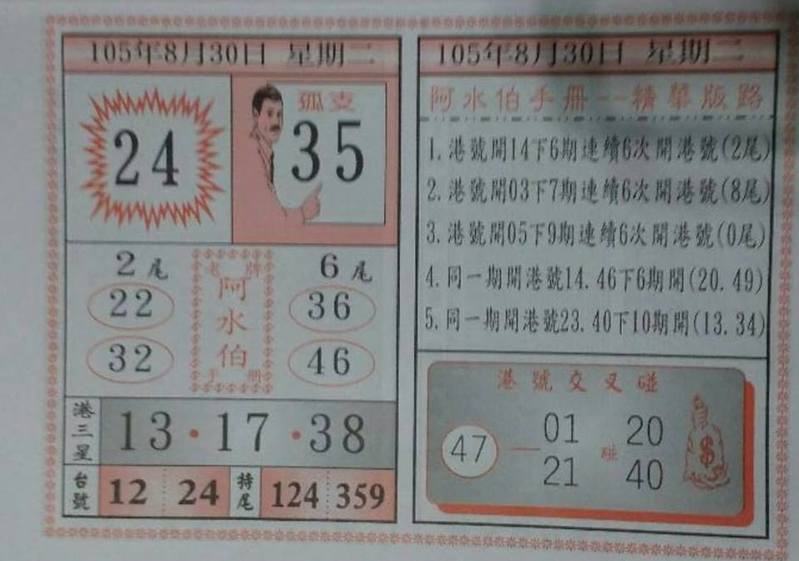 105年8月30日 星期二
24
孤支
35
2尾
22
32
老牌
阿水伯
手冊
6尾
36
46
港三星
13·17·38
台號
12 24
特尾
124 359
105年8月30日 星期二
阿水伯手冊--精華版路
1.港號開14下6期連續6次開港號(2尾)
2.港號開03下7期連續6次開港號(8尾)
3.港號開05下9期連續6次開港號(0尾)
4.同一期開港號14.46下6期開(20.49)
5.同一期開港號23.40下10期開(13.34)
港號交叉碰
47
01
21
碰
20
40
$